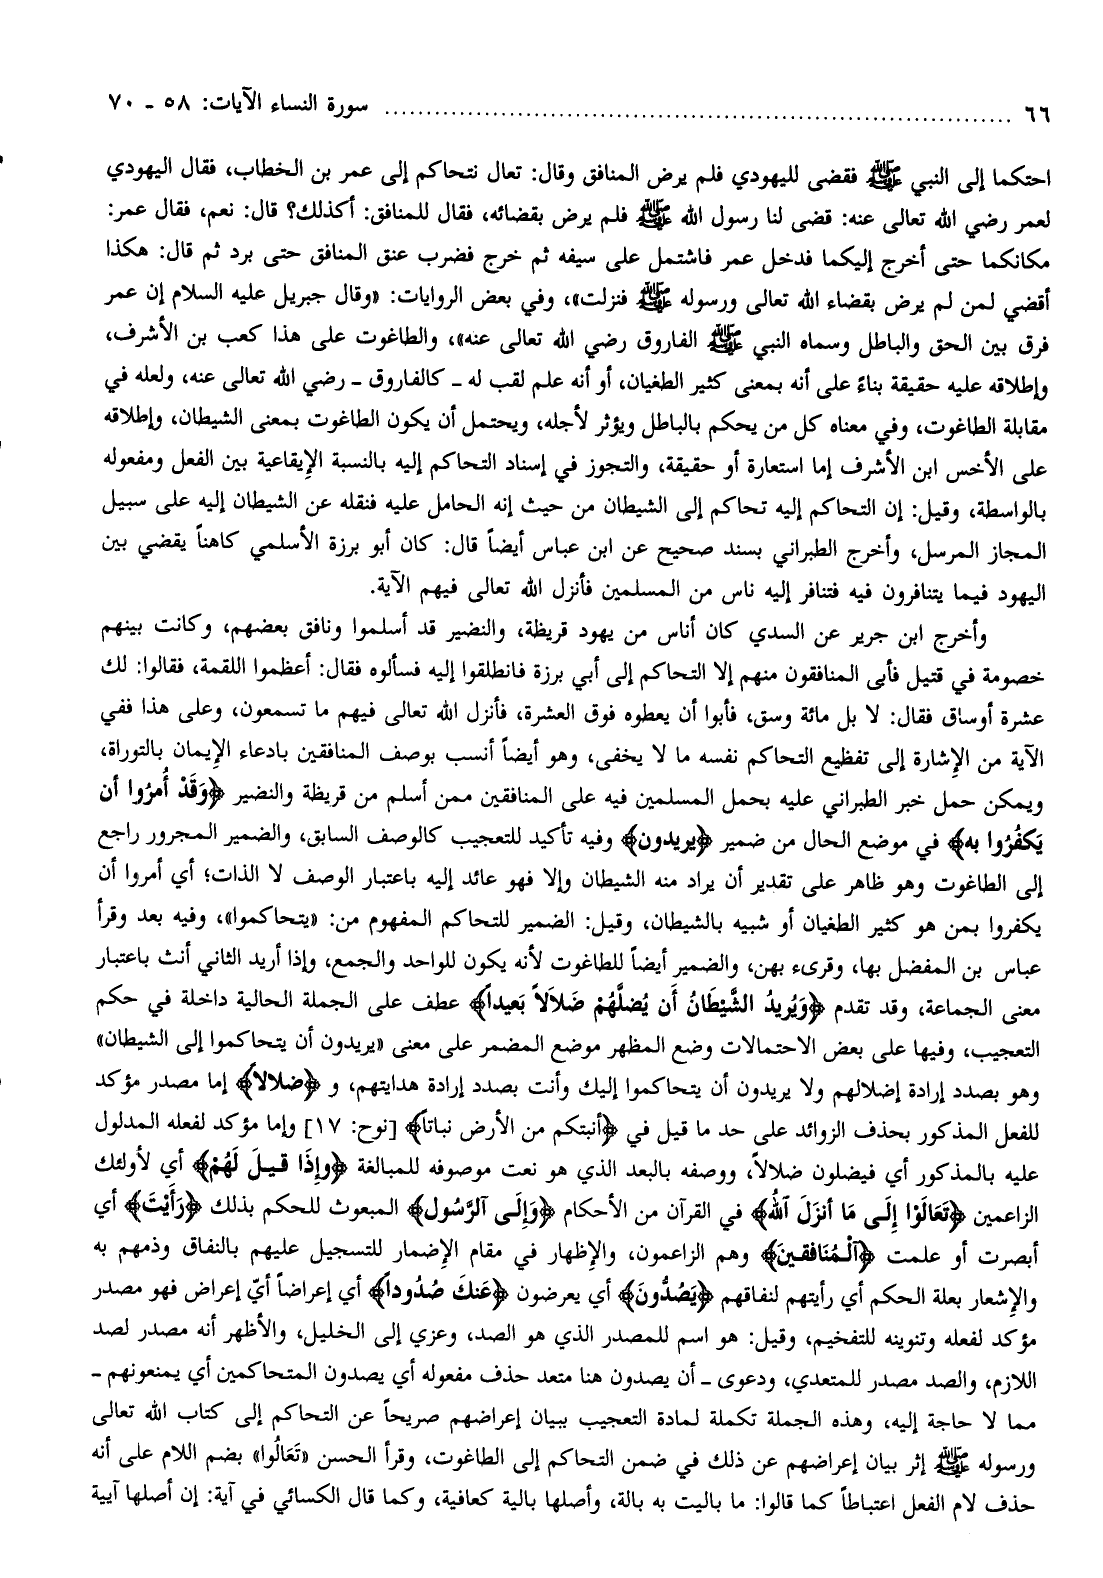 ٦٦ ........................................................................ سورة النساء الآيات: ٥٨ ـ ٧٠
احتكما إلى النبي ﷺ فقضى لليهودي فلم يرض المنافق وقال: تعال نتحاكم إلى عمر بن الخطاب، فقال اليهودي
لعمر رضي الله تعالى عنه: قضى لنا رسول الله ﷺ فلم يرض بقضائه، فقال للمنافق: أكذلك؟ قال: نعم، فقال عمر:
مكانكما حتى أخرج إليكما فدخل عمر فاشتمل على سيفه ثم خرج فضرب عنق المنافق حتى برد ثم قال: هكذا
أقضي لمن لم يرض بقضاء الله تعالى ورسوله ﷺ فنزلت»، وفي بعض الروايات: «وقال جبريل عليه السلام إن عمر
فرق بين الحق والباطل وسماه النبي ﷺ الفاروق رضي الله تعالى عنه»، والطاغوت على هذا كعب بن الأشرف،
وإطلاقه عليه حقيقة بناءً على أنه بمعنى كثير الطغيان، أو أنه علم لقب له ـ كالفاروق ـ رضي الله تعالى عنه، ولعله في
مقابلة الطاغوت، وفي معناه كل من يحكم بالباطل ويؤثر لأجله، ويحتمل أن يكون الطاغوت بمعنى الشيطان، وإطلاقه
على الأخس ابن الأشرف إما استعارة أو حقيقة، والتجوز في إسناد التحاكم إليه بالنسبة الإيقاعية بين الفعل ومفعوله
بالواسطة، وقيل: إن التحاكم إليه تحاكم إلى الشيطان من حيث إنه الحامل عليه فنقله عن الشيطان إليه على سبيل
المجاز المرسل، وأخرج الطبراني بسند صحيح عن ابن عباس أيضاً قال: كان أبو برزة الأسلمي كاهناً يقضي بين
اليهود فيما يتنافرون فيه فتنافر إليه ناس من المسلمين فأنزل الله تعالى فيهم الآية.
وأخرج ابن جرير عن السدي كان أناس من يهود قريظة، والنضير قد أسلموا ونافق بعضهم، وكانت بينهم
خصومة في قتيل فأبى المنافقون منهم إلا التحاكم إلى أبي برزة فانطلقوا إليه فسألوه فقال: أعظموا اللقمة، فقالوا: لك
عشرة أوساق فقال: لا بل مائة وسق، فأبوا أن يعطوه فوق العشرة، فأنزل الله تعالى فيهم ما تسمعون، وعلى هذا ففي
الآية من الإشارة إلى تفظيع التحاكم نفسه ما لا يخفى، وهو أيضاً أنسب بوصف المنافقين بادعاء الإيمان بالتوراة،
ويمكن حمل خبر الطبراني عليه بحمل المسلمين فيه على المنافقين ممن أسلم من قريظة والنضير ﴿وَقَدْ أُمِرُوا أن
يَكفُرُوا به﴾ في موضع الحال من ضمير ﴿يريدون﴾ وفيه تأكيد للتعجيب كالوصف السابق، والضمير المجرور راجع
إلى الطاغوت وهو ظاهر على تقدير أن يراد منه الشيطان وإلا فهو عائد إليه باعتبار الوصف لا الذات؛ أي أمروا أن
يكفروا بمن هو كثير الطغيان أو شبيه بالشيطان، وقيل: الضمير للتحاكم المفهوم من: «يتحاكموا»، وفيه بعد وقرأ
عباس بن المفضل بها، وقرىء بهن، والضمير أيضاً للطاغوت لأنه يكون للواحد والجمع، وإذا أريد الثاني أنث باعتبار
معنى الجماعة، وقد تقدم ﴿وَيُرِيدُ الشَّيْطَانُ أَن يُضلَّهُمْ ضَلاَلاً بَعيداً﴾ عطف على الجملة الحالية داخلة في حكم
التعجيب، وفيها على بعض الاحتمالات وضع المظهر موضع المضمر على معنى «يريدون أن يتحاكموا إلى الشيطان»
وهو بصدد إرادة إضلالهم ولا يريدون أن يتحاكموا إليك وأنت بصدد إرادة هدايتهم، و ﴿ضلالاً﴾ إما مصدر مؤكد
للفعل المذكور بحذف الزوائد على حد ما قيل في ﴿أنبتكم من الأرض نباتاً﴾ [نوح: ١٧] وإما مؤكد لفعله المدلول
عليه بالمذكور أي فيضلون ضلالاً، ووصفه بالبعد الذي هو نعت موصوفه للمبالغة ﴿وإِذَا قيلَ لَهُمْ﴾ أي لأولئك
الزاعمين ﴿تَعَالَوْا إلَى مَا أنزَلَ آللهُ﴾ في القرآن من الأحكام ﴿وَإلَى آلرَّسُول﴾ المبعوث للحكم بذلك ﴿رَأَيْتَ﴾ أي
أبصرت أو علمت ﴿آلْمُنَافقينَ﴾ وهم الزاعمون، والإظهار في مقام الإضمار للتسجيل عليهم بالنفاق وذمهم به
والإشعار بعلة الحكم أي رأيتهم لنفاقهم ﴿يَصُدُّونَ﴾ أي يعرضون ﴿عَنكَ صُدُوداً﴾ أي إعراضاً أيّ إعراض فهو مصدر
مؤكد لفعله وتنوينه للتفخيم، وقيل: هو اسم للمصدر الذي هو الصد، وعزي إلى الخليل، والأظهر أنه مصدر لصد
اللازم، والصد مصدر للمتعدي، ودعوى ـ أن يصدون هنا متعد حذف مفعوله أي يصدون المتحاكمين أي يمنعونهم ـ
مما لا حاجة إليه، وهذه الجملة تكملة لمادة التعجيب ببيان إعراضهم صريحاً عن التحاكم إلى كتاب الله تعالى
ورسوله ﷺ إثر بيان إعراضهم عن ذلك في ضمن التحاكم إلى الطاغوت، وقرأ الحسن «تَعَالُوا» بضم اللام على أنه
حذف لام الفعل اعتباطاً كما قالوا: ما باليت به بالة، وأصلها بالية كعافية، وكما قال الكسائي في آية: إن أصلها آيية